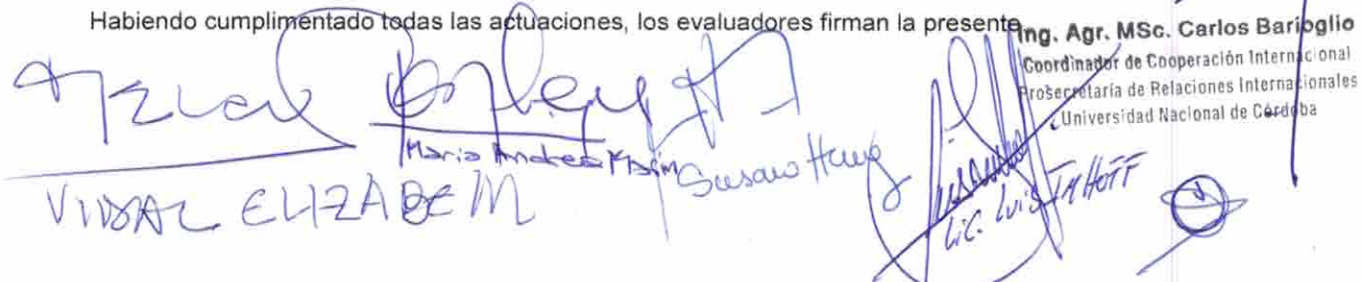 Habiendo cumplimentado todas las actuaciones, los evaluadores firman la presente
Ing. Agr. MSc. Carlos Barioglio
Coordinador de Cooperación Internacional
Prosecretaría de Relaciones Internacionales
Universidad Nacional de Córdoba
VIDAL ELIZABETH
Maria Andrea
Susana
Lic. Luis IMHOFF